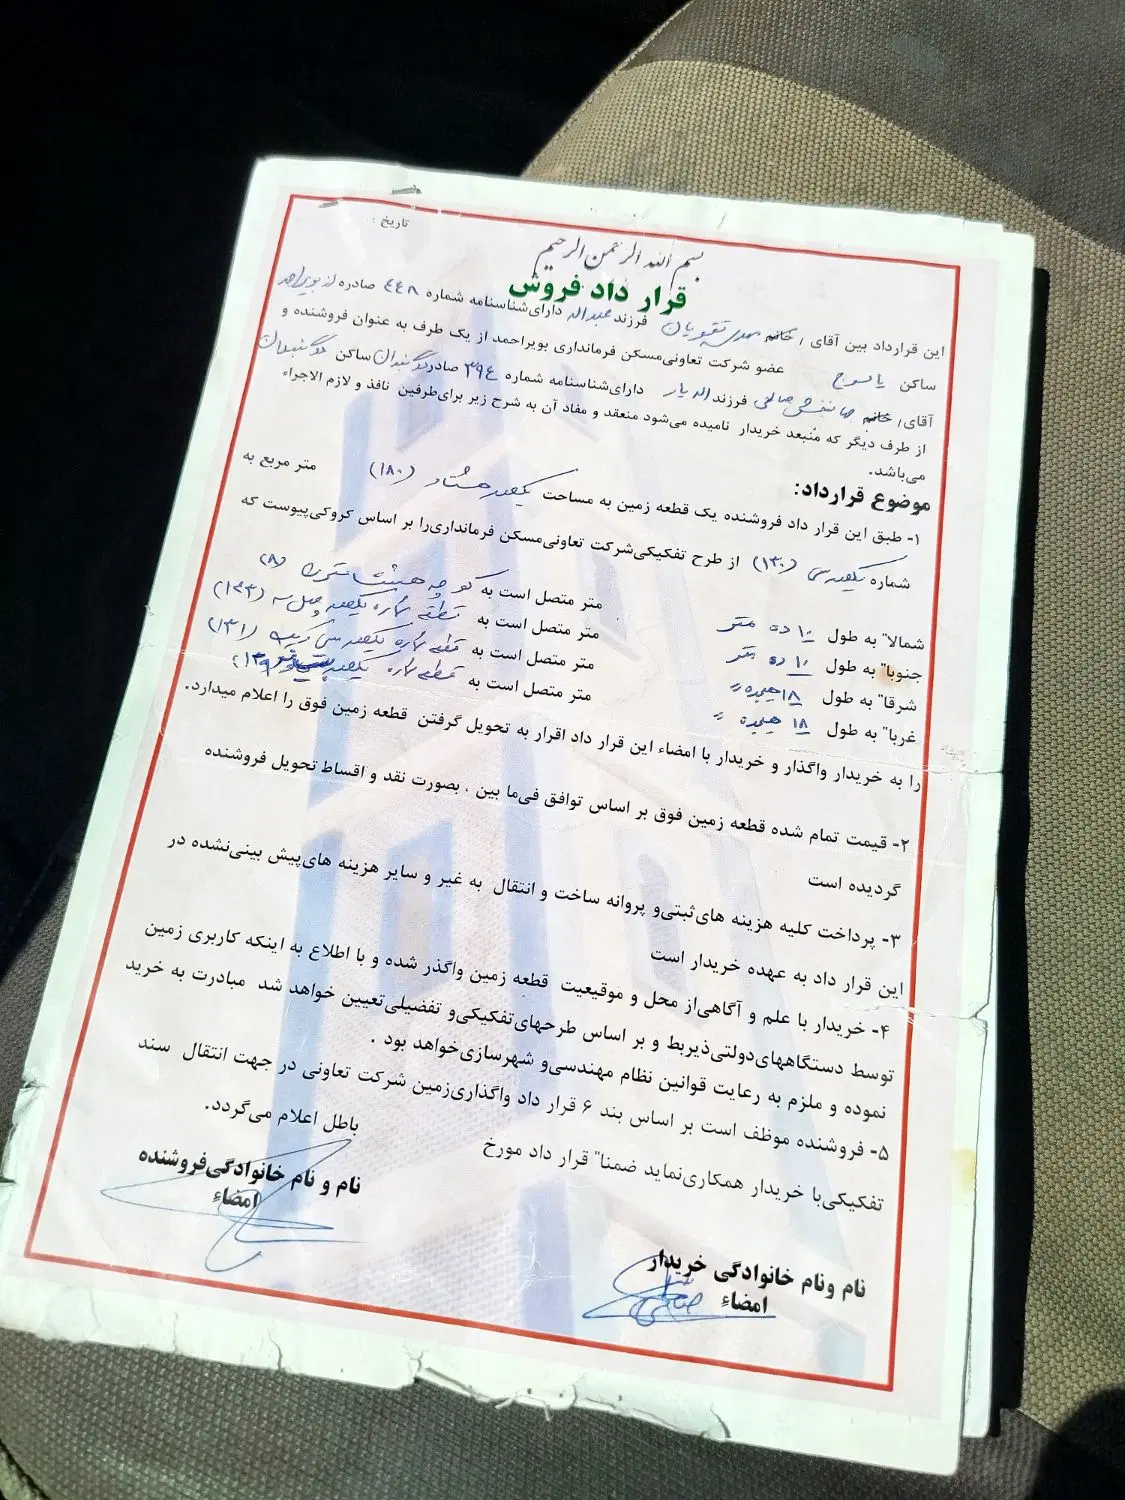 تاریخ :
بسم الله الرحمن الرحیم
قرار داد فروش
این قرارداد بین آقای / خانم مهدی تقویان فرزند عبداله دارای شناسنامه شماره ٤٤٨ صادره از بویراحمد
ساکن یاسوج عضو شرکت تعاونی مسکن فرمانداری بویراحمد از یک طرف به عنوان فروشنده و
آقای / خانم صالحی فرزند اله یار دارای شناسنامه شماره ٣٩٤ صادره ساکن
از طرف دیگر که منبعد خریدار نامیده می‌شود منعقد و مفاد آن به شرح زیر برای طرفین نافذ و لازم الاجراء
می‌باشد.
موضوع قرارداد:
۱- طبق این قرار داد فروشنده یک قطعه زمین به مساحت یکصد هشتاد (۱۸۰) متر مربع به
شماره یکصد سی (۱۳۰) از طرح تفکیکی شرکت تعاونی مسکن فرمانداری را بر اساس کروکی پیوست که
شمالا" به طول ۱۰ ده متر متر متصل است به کوچه هشت متری (۸)
جنوبا" به طول ۱۰ ده متر متر متصل است به قطعه شماره یکصد چهل سه (۱۴۳)
شرقا" به طول ۱۸ هیجده " متر متصل است به قطعه شماره یکصد سی و یک (۱۳۱)
غربا" به طول ۱۸ هیجده " متر متصل است به قطعه شماره یکصد (۱۲۹)
را به خریدار واگذار و خریدار با امضاء این قرار داد اقرار به تحویل گرفتن قطعه زمین فوق را اعلام میدارد.
۲- قیمت تمام شده قطعه زمین فوق بر اساس توافق فی‌ما بین ، بصورت نقد و اقساط تحویل فروشنده
گردیده است
۳- پرداخت کلیه هزینه های ثبتی و پروانه ساخت و انتقال به غیر و سایر هزینه های پیش بینی نشده در
این قرار داد به عهده خریدار است
۴- خریدار با علم و آگاهی از محل و موقیعیت قطعه زمین واگذر شده و با اطلاع به اینکه کاربری زمین
توسط دستگاههای دولتی ذیربط و بر اساس طرحهای تفکیکی و تفضیلی تعیین خواهد شد مبادرت به خرید
نموده و ملزم به رعایت قوانین نظام مهندسی و شهرسازی خواهد بود .
۵- فروشنده موظف است بر اساس بند ۶ قرار داد واگذاری زمین شرکت تعاونی در جهت انتقال سند
تفکیکی با خریدار همکاری نماید ضمنا" قرار داد مورخ باطل اعلام می‌گردد.
نام و نام خانوادگی فروشنده
امضاء
نام ونام خانوادگی خریدار
امضاء